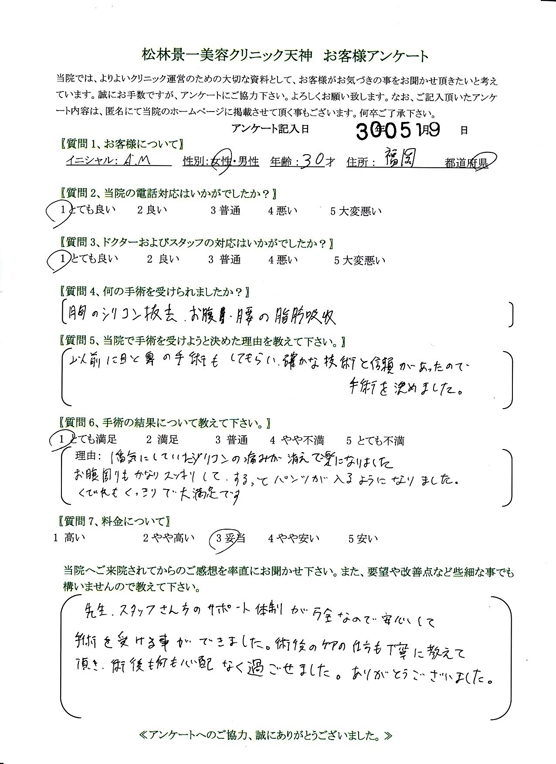 松林景一美容クリニック天神 お客様アンケート
当院では、よりよいクリニック運営のための大切な資料として、お客様がお気づきの事をお聞かせ頂きたいと考え
ています。誠にお手数ですが、アンケートにご協力下さい。よろしくお願い致します。なお、ご記入頂いたアンケ
ート内容は、匿名にて当院のホームページに掲載させて頂く事もございます。何卒ご了承下さい。
アンケート記入日 30051月9 日
【質問1、お客様について】
イニシャル: A.M 性別:女性・男性 年齢:30才 住所: 福岡 都道府県
【質問2、当院の電話対応はいかがでしたか?】
1とても良い 2 良い 3 普通 4 悪い 5 大変悪い
【質問3、ドクターおよびスタッフの対応はいかがでしたか?】
1とても良い 2 良い 3 普通 4 悪い 5 大変悪い
【質問4、何の手術を受けられましたか?】
胸のシリコン抜去、お腹・腰の脂肪吸収
【質問5、当院で手術を受けようと決めた理由を教えて下さい。】
以前に目と鼻の手術もしてもらい、確かな技術と信頼があったので
手術を決めました。
【質問6、手術の結果について教えて下さい。】
1とても満足 2 満足 3 普通 4 やや不満 5 とても不満
理由: 1番気にしていたシリコンの痛みが消えて楽になりました
お腹周りもかなりスッキリして、するっとパンツが入るようになりました。
くびれもくっきりで大満足です
【質問7、料金について】
1 高い 2 やや高い 3 妥当 4 やや安い 5 安い
当院へご来院されてからのご感想を率直にお聞かせ下さい。また、要望や改善点など些細な事でも
構いませんので教えて下さい。
先生、スタッフさん方のサポート体制が万全なので安心して
手術を受ける事ができました。術後のケアの仕方も丁寧に教えて
頂き、術後も何も心配なく過ごせました。ありがとうございました。
≪アンケートへのご協力、誠にありがとうございました。≫